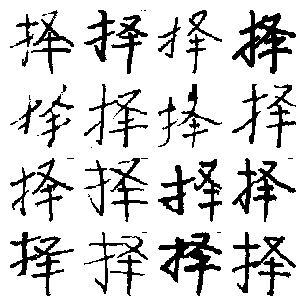 择择择择
择择择择
择择择择
择择择择